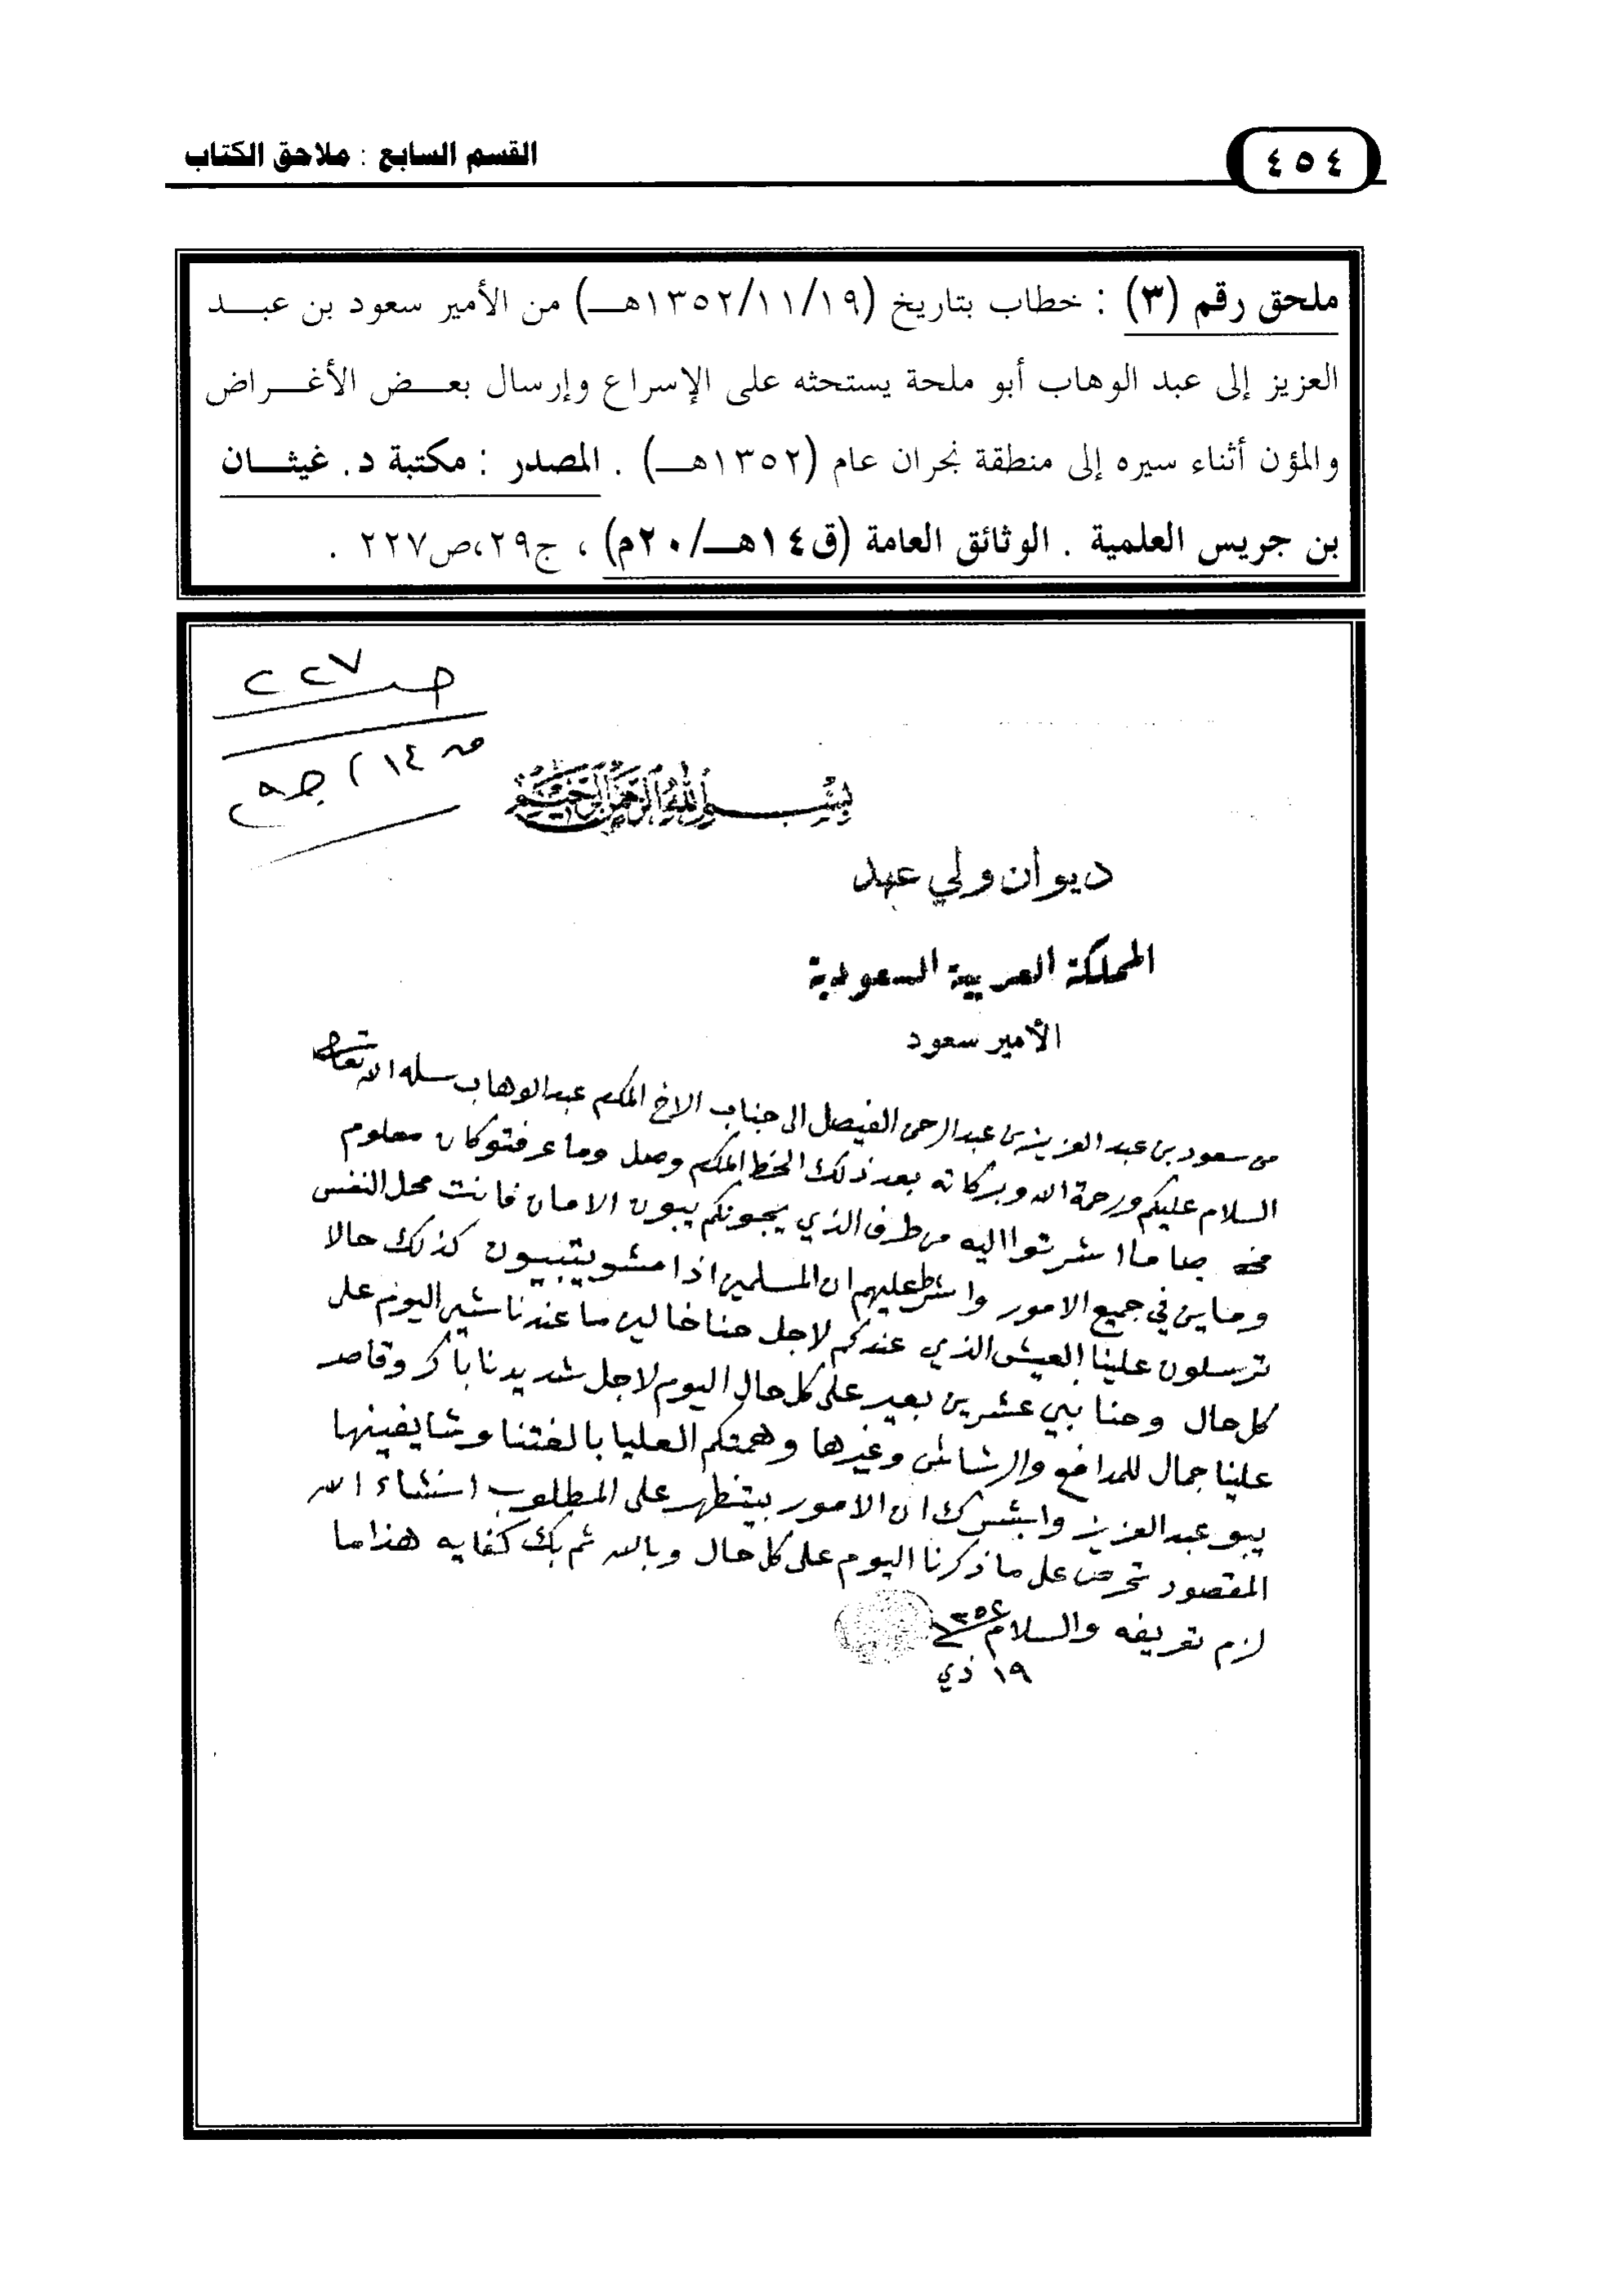 القسم السابع : ملاحق الكتاب
٤٥٤
ملحق رقم (٣) : خطاب بتاريخ (١٣٥٢/١١/١٩هـ) من الأمير سعود بن عبد
العزيز إلى عبد الوهاب أبو ملحة يستحثه على الإسراع وإرسال بعض الأغراض
والمؤن أثناء سيره إلى منطقة نجران عام (١٣٥٢هـ) . المصدر : مكتبة د. غيثان
بن جريس العلمية . الوثائق العامة (ق١٤هـ/٢٠م) ، ج٢٩،ص٢٢٧ .
ص ٢٢٧
بسم الله الرحمن الرحيم
ديوان ولي عهد
المملكة العربية السعودية
الأمير سعود
من سعود بن عبد العزيز بن عبدالرحمن الفيصل الى جناب الاخ المكرم عبدالوهاب سلمه الله تعالى
السلام عليكم ورحمة الله وبركاته بعد ذلك الخط المكرم وصل وما عرفتو كان معلوم
ما اشرتوا اليه من طرف الذي يجونكم يبون الامان فانت محل النفس
في جميع الامور واشرط عليهم ان المسلمين اذا مشو يتبيون كذلك حالا
ترسلون علينا العيش الذي عندكم لاجل حنا خالين ما عندنا شي اليوم على
كل حال وحنا نبي عشرين بعير على كل حال اليوم لاجل شديدنا باكر وقاصر
علينا جمال للمدافع والرشاش وغيرها وهمتكم العليا بالغتنا وشايفينها
يبو عبدالعزيز وابشرك ان الامور بيتظهر على المطلوب انشاء الله
المقصود تحرص على ما ذكرنا اليوم على كل حال وبالله ثم بك كفايه هذا ما
لزم تعريفه والسلام ١٣٥٢
١٩ ذي